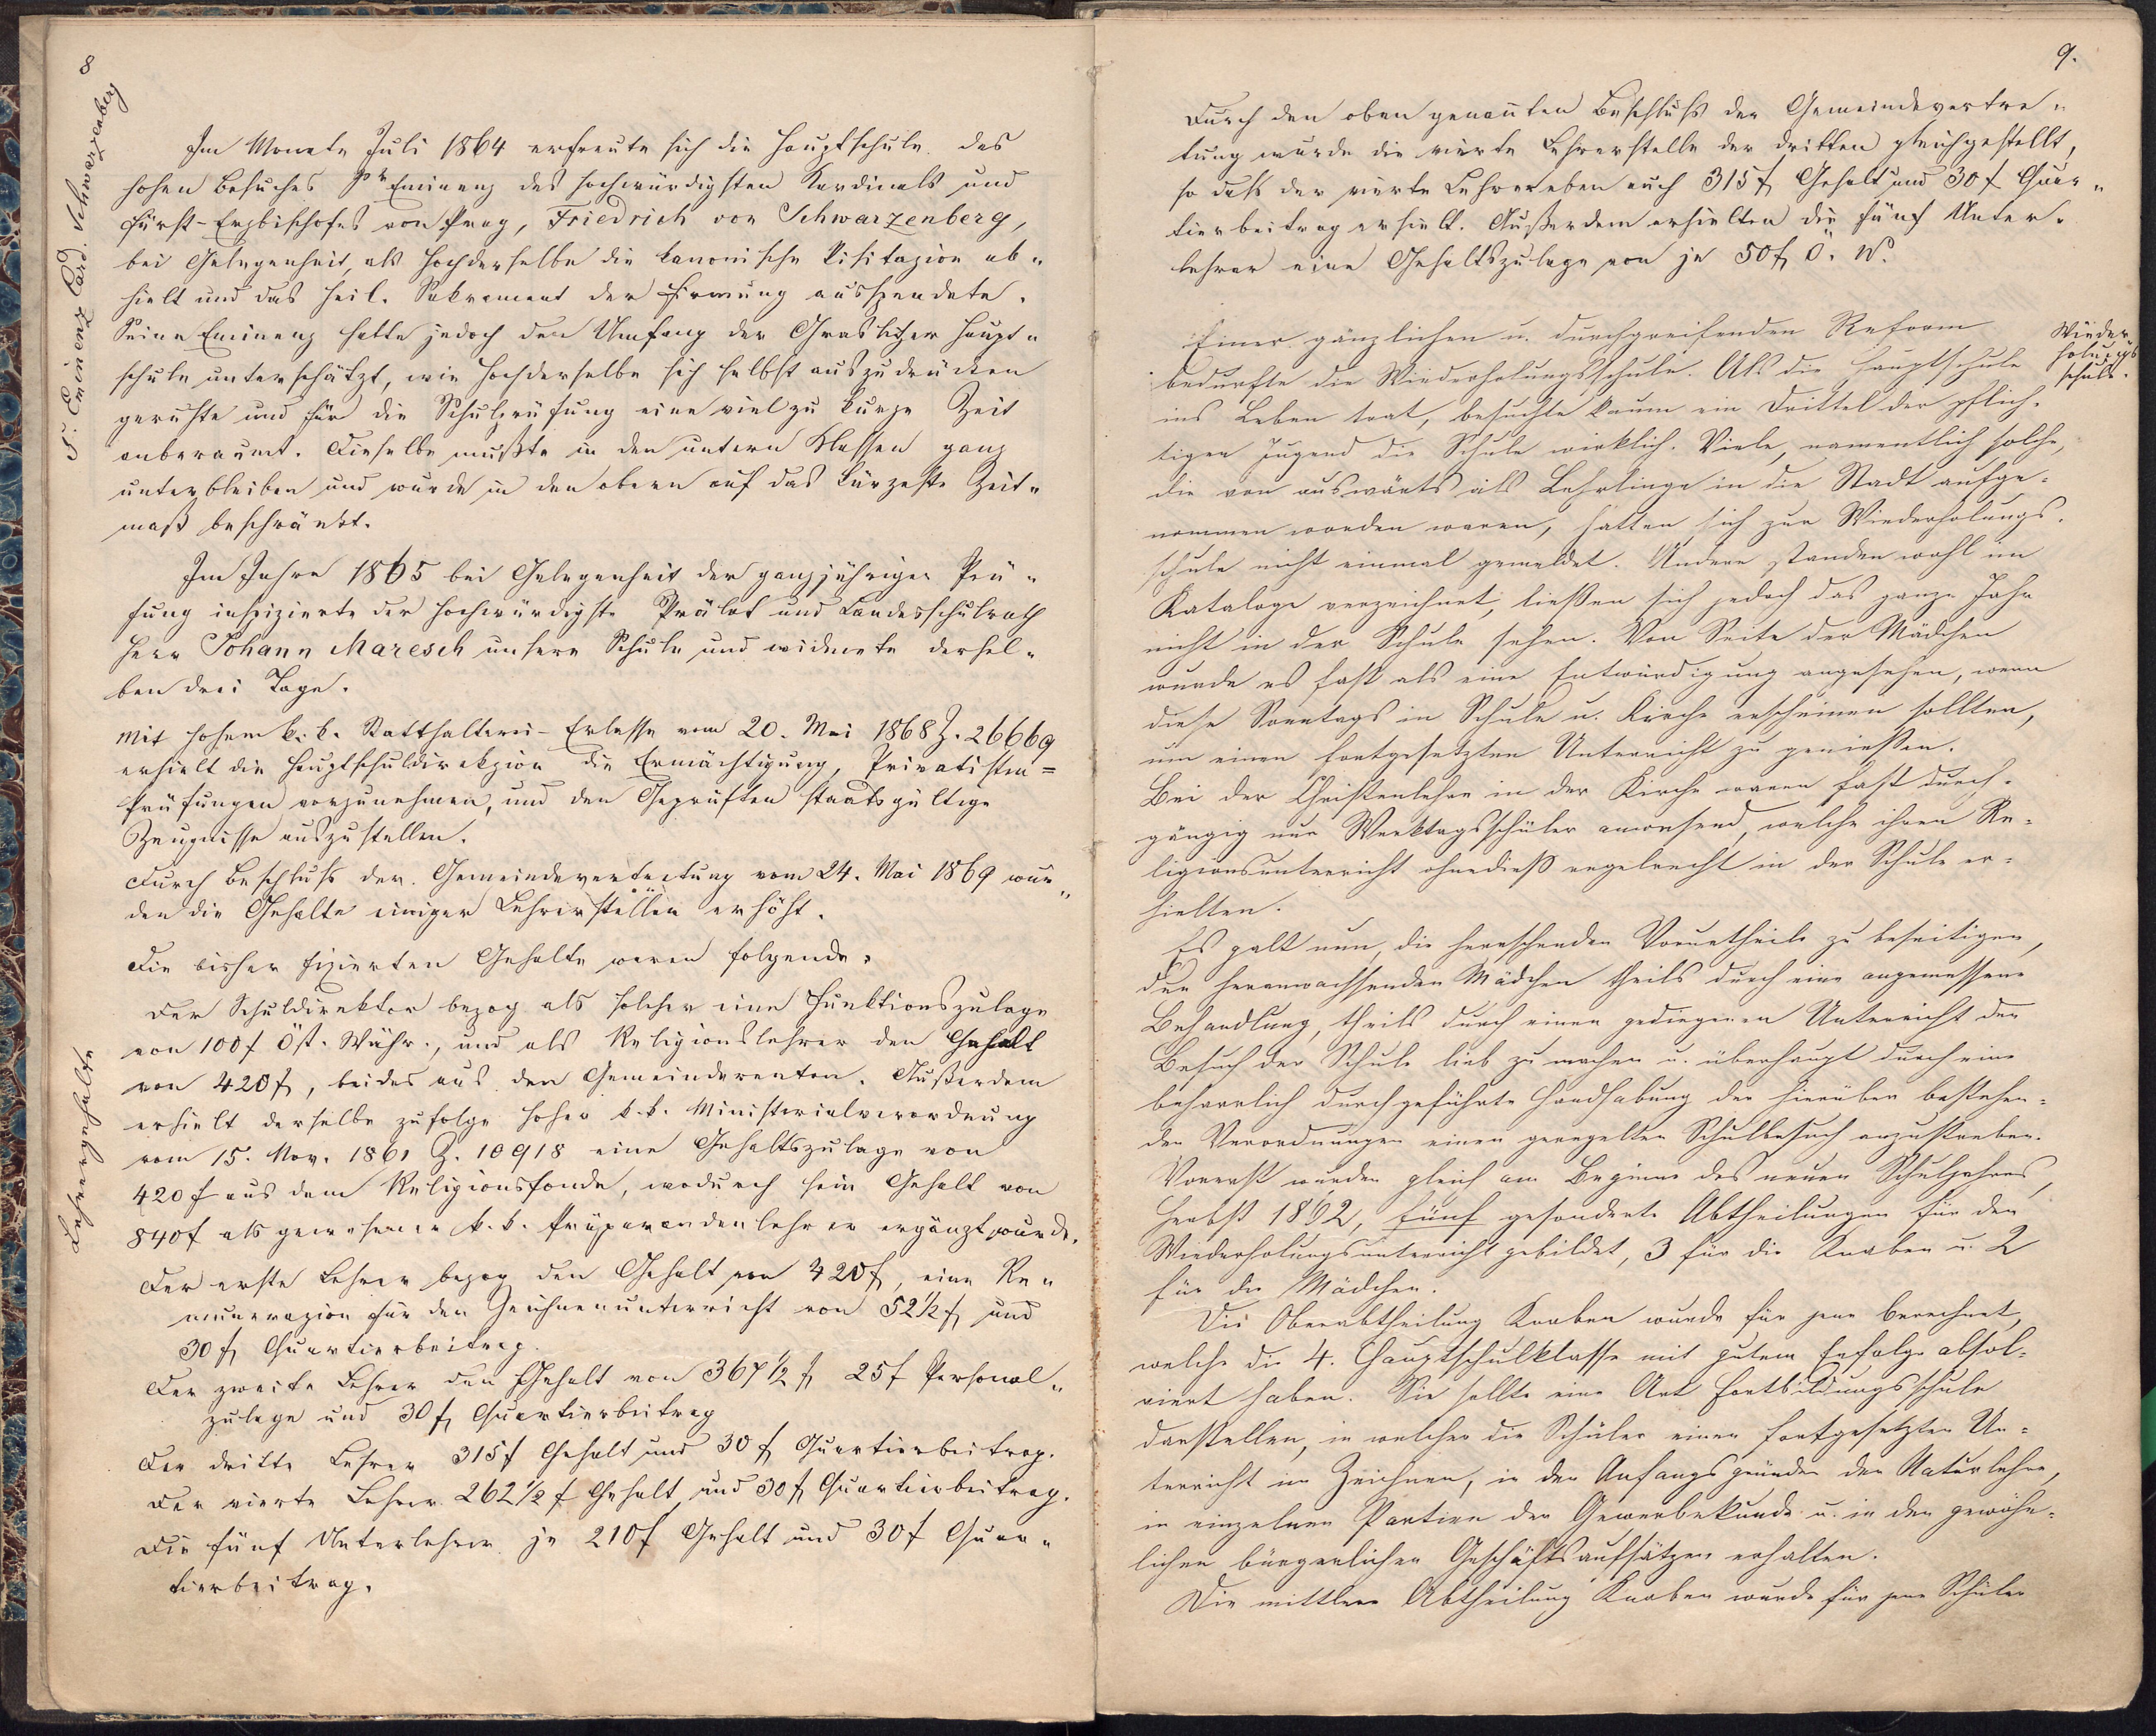 8
S: Eminenz Card. Schwarzenberg
Im Monate Juli 1864 erfreute sich die Hauptschule des
hohen Besuches Sr Eminenz des hochwürdigsten Kardinals und
Fürst-Erzbischofes von Prag, Friedrich von Schwarzenberg,
bei Gelegenheit, als Hochderselbe die kanonische Visitazion ab„
hielt und das heil. Sakrament der Firmung ausspendete.
Seine Eminenz hatte jedoch den Umfang der Graslitzer Haupt„
schule unterschätzt, wie Hochderselbe sich selbst auszudrücken
geruhte und für die Schulprüfung eine viel zu kurze Zeit
anberaumt. Dieselbe mußte in den untern Klassen ganz
unterbleiben und wurde in den obern auf das kürzeste Zeit„
maß beschränkt.
Im Jahre 1865 bei Gelegenheit der ganzjährigen Prü„
fung inspizierte der hochwürdigste Prälat und Landesschulrath
Herr Johann Maresch unsere Schule und widmete dersel„
ben drei Tage.
Mit hohem k. k. Statthalterei-Erlasse vom 20. Mai 1868 Z. 26669
erhielt die Hauptschuldirekzion die Ermächtigung, Privatisten=
Prüfungen vorzunehmen, und den Geprüften staatsgültige
Zeugnisse auszustellen.
Durch Beschluß der Gemeindevertretung vom 24. Mai 1869 wur„
den die Gehalte einiger Lehrerstellen erhöht.
Die bisher fixierten Gehalte waren folgende:
Lehrergehalte
Der Schuldirektor bezog als solcher eine Funktionszulage
von 100 f Öst. Währ., und als Religionslehrer den Gehalt
von 420 f, beides aus den Gemeinderenten. Außerdem
erhielt derselbe zufolge hoher k. k. Ministerialverordnung
vom 15. Nov. 1861 Z. 10918 eine Gehaltszulage von
420 f aus dem Religionsfonde, wodurch sein Gehalt von
840 f als gewesener k. k. Präparandenlehrer ergänzt wurde.
Der erste Lehrer bezog den Gehalt von 420 f, eine Re„
munerazion für den Zeichnenunterricht von 52½ f und
30 f Quartierbeitrag.
Der zweite Lehrer den Gehalt von 367½ f 25 f Personal„
zulage und 30 f Quartierbeitrag
Der dritte Lehrer 315 f Gehalt und 30 f Quartierbeitrag.
Der vierte Lehrer 262½ f Gehalt und 30 f Quartierbeitrag.
Die fünf Unterlehrer je 210 f Gehalt und 30 f Quar„
tierbeitrag.
9.
Durch den oben genannten Beschluß der Gemeindevertre„
tung wurde die vierte Lehrerstelle der dritten gleichgestellt,
so daß der vierte Lehrer eben auch 315 f Gehalt und 30 f Quar„
tierbeitrag erhielt. Außerdem erhielten die fünf Unter„
lehrer eine Gehaltszulage von je 50 f Ö. W.
Wieder„
holungs
schule.
Einer gänzlichen u. durchgreifenden Reform
bedurfte die Wiederholungsschule. Als die Hauptschule
ins Leben trat, besuchte kaum ein Drittel der pflich-
tigen Jugend die Schule wirklich. Viele, namentlich solche,
die von auswärts als Lehrlinge in die Stadt aufge-
nommen worden waren, hatten sich zur Wiederholungs-
schule nicht einmal gemeldet. Andere standen wohl im
Kataloge verzeichnet, ließen sich jedoch das ganze Jahr
nicht in der Schule sehen. Von Seite der Mädchen
wurde es fast als eine Entwürdigung angesehen, wenn
diese Sonntags in Schule u. Kirche erscheinen sollten,
um einen fortgesetzten Unterricht zu genießen.
Bei der Christenlehre in der Kirche waren fast durch-
gängig nur Werktagsschüler anwesend, welche ihren Re-
ligionsunterricht ohnedieß regelrecht in der Schule er-
hielten.
Es galt nun, die herrschenden Vorurtheile zu beseitigen,
den heranwachsenden Mädchen theils durch eine angemessene
Behandlung, theils durch einen gediegenen Unterricht den
Besuch der Schule lieb zu machen u. überhaupt durch eine
beharrlich durchgeführte Handhabung der hierüber bestehen-
den Verordnungen einen geregelten Schulbesuch anzustreben.
Vorerst wurden gleich am Beginne des neuen Schuljahres,
Herbst 1862, fünf gesonderte Abtheilungen für den
Wiederholungsunterricht gebildet, 3 für die Knaben u. 2
für die Mädchen.
Die Oberabtheilung Knaben wurde für jene berechnet,
welche die 4. Hauptschulklasse mit gutem Erfolge absol-
viert haben. Sie sollte eine Art Fortbildungsschule
darstellen, in welcher die Schüler einen fortgesetzten Un-
terricht im Zeichnen, in den Anfangsgründen der Naturlehre,
in einzelnen Partien der Gewerbekunde u. in den gewöhn-
lichen bürgerlichen Geschäftsaufsätzen erhalten.
Die mittlere Abtheilung Knaben wurde für jene Schüler